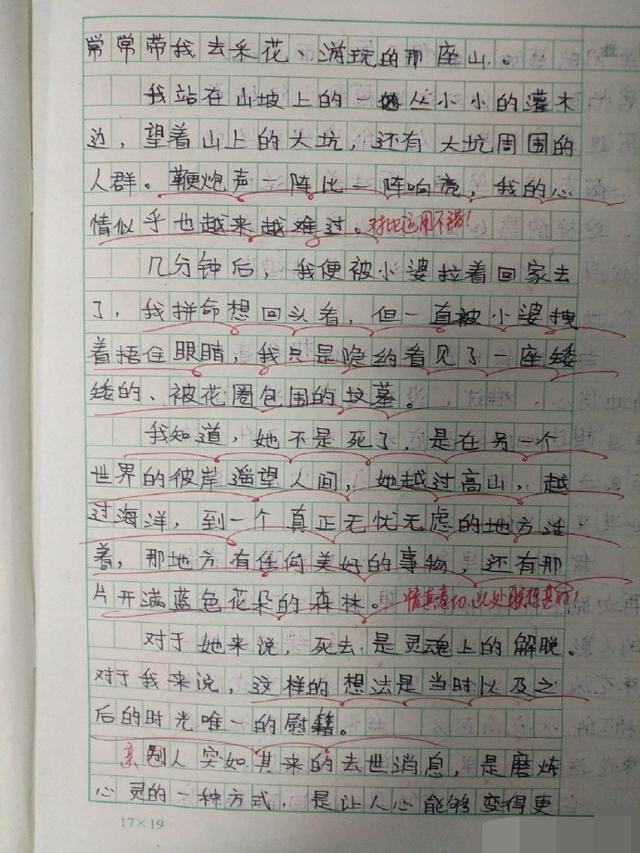 常常带我去采花、游玩的那座山。
我站在山坡上的一丛小小的灌木
边，望着山上的大坑，还有大坑周围的
人群。鞭炮声一阵比一阵响亮，我的心
情似乎也越来越难过。对比运用不错！
几分钟后，我便被小婆拉着回家去
了，我拼命想回头看，但一直被小婆拽
着捂住眼睛，我只是隐约看见了一座矮
矮的、被花圈包围的坟墓。
我知道，她不是死了，是在另一个
世界的彼岸遥望人间，她越过高山，越
过海洋，到一个真正无忧无虑的地方活
着，那地方有任何美好的事物，还有那
片开满蓝色花朵的森林。情真意切，此处联想甚好！
对于她来说，死去是灵魂上的解脱。
对于我来说，这样的想法是当时以及之
后的时光唯一的慰籍。
亲别人突如其来的去世消息，是磨炼
心灵的一种方式，是让人心能够变得更
17×19